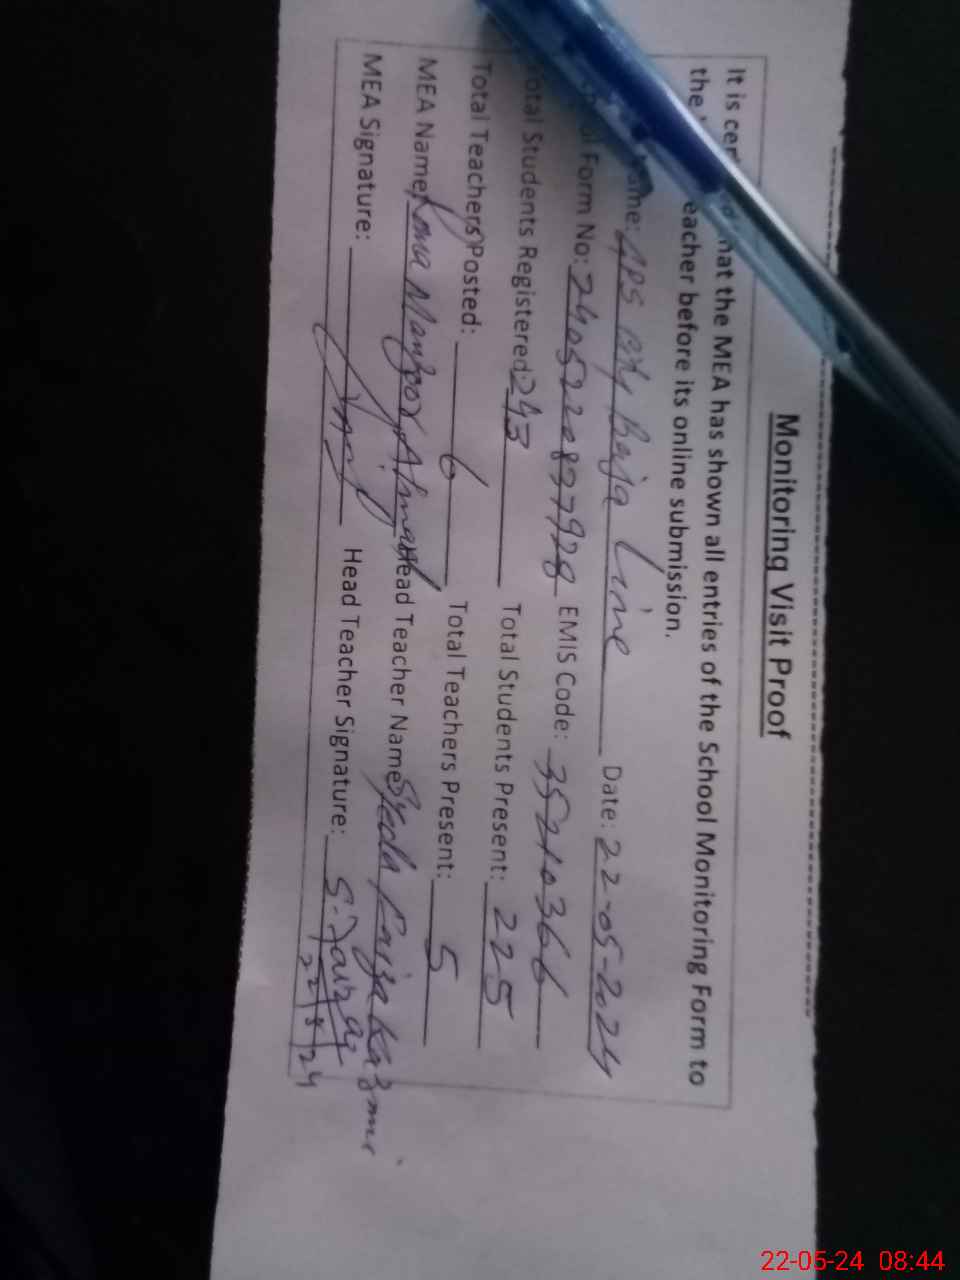 Monitoring Visit Proof
It is that the MEA has shown all entries of the School Monitoring Form to
the eacher before its online submission.
ame: GPS Baja Line Date: 22-05-2024
Form No: 24052208 EMIS Code: 35210366
otal Students Registered: 243 Total Students Present: 225
Total Teachers Posted: 6 Total Teachers Present: 5
MEA Name: Manzoor Ahmad Head Teacher Name: Syeda Faiza Kazmi
MEA Signature: Head Teacher Signature: S. Faiza
22/5/24
22-05-24 08:44